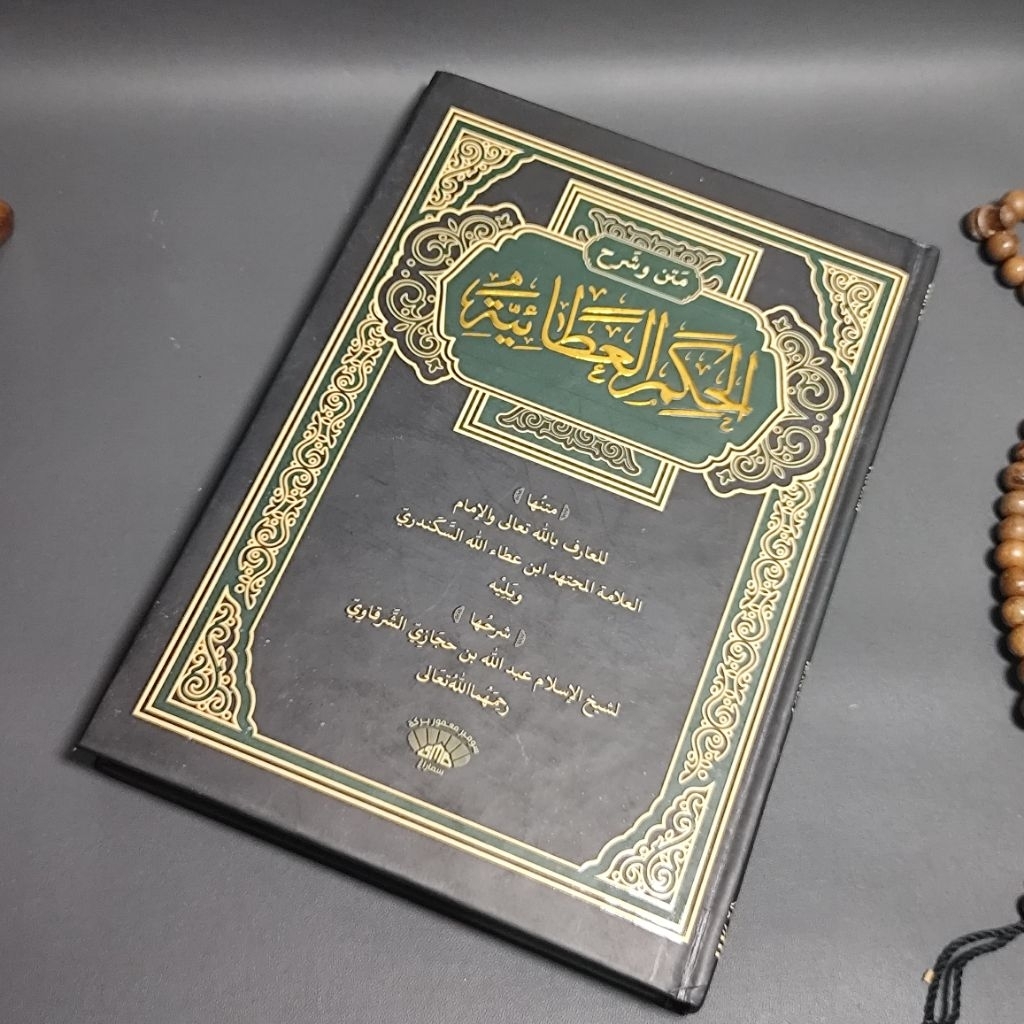 متن وشرح
الحكم العطائية
متنُها
للعارف بالله تعالى والإمام
العلامة المجتهد ابن عطاء الله السَّكندريّ
ويَلِيْه
شرحُها
لشيخ الإسلام عبد الله بن حجازيّ الشَّرقاويّ
رحِمَهُما اللهُ تعَالى
سومبر معمور بركة
سمارانج